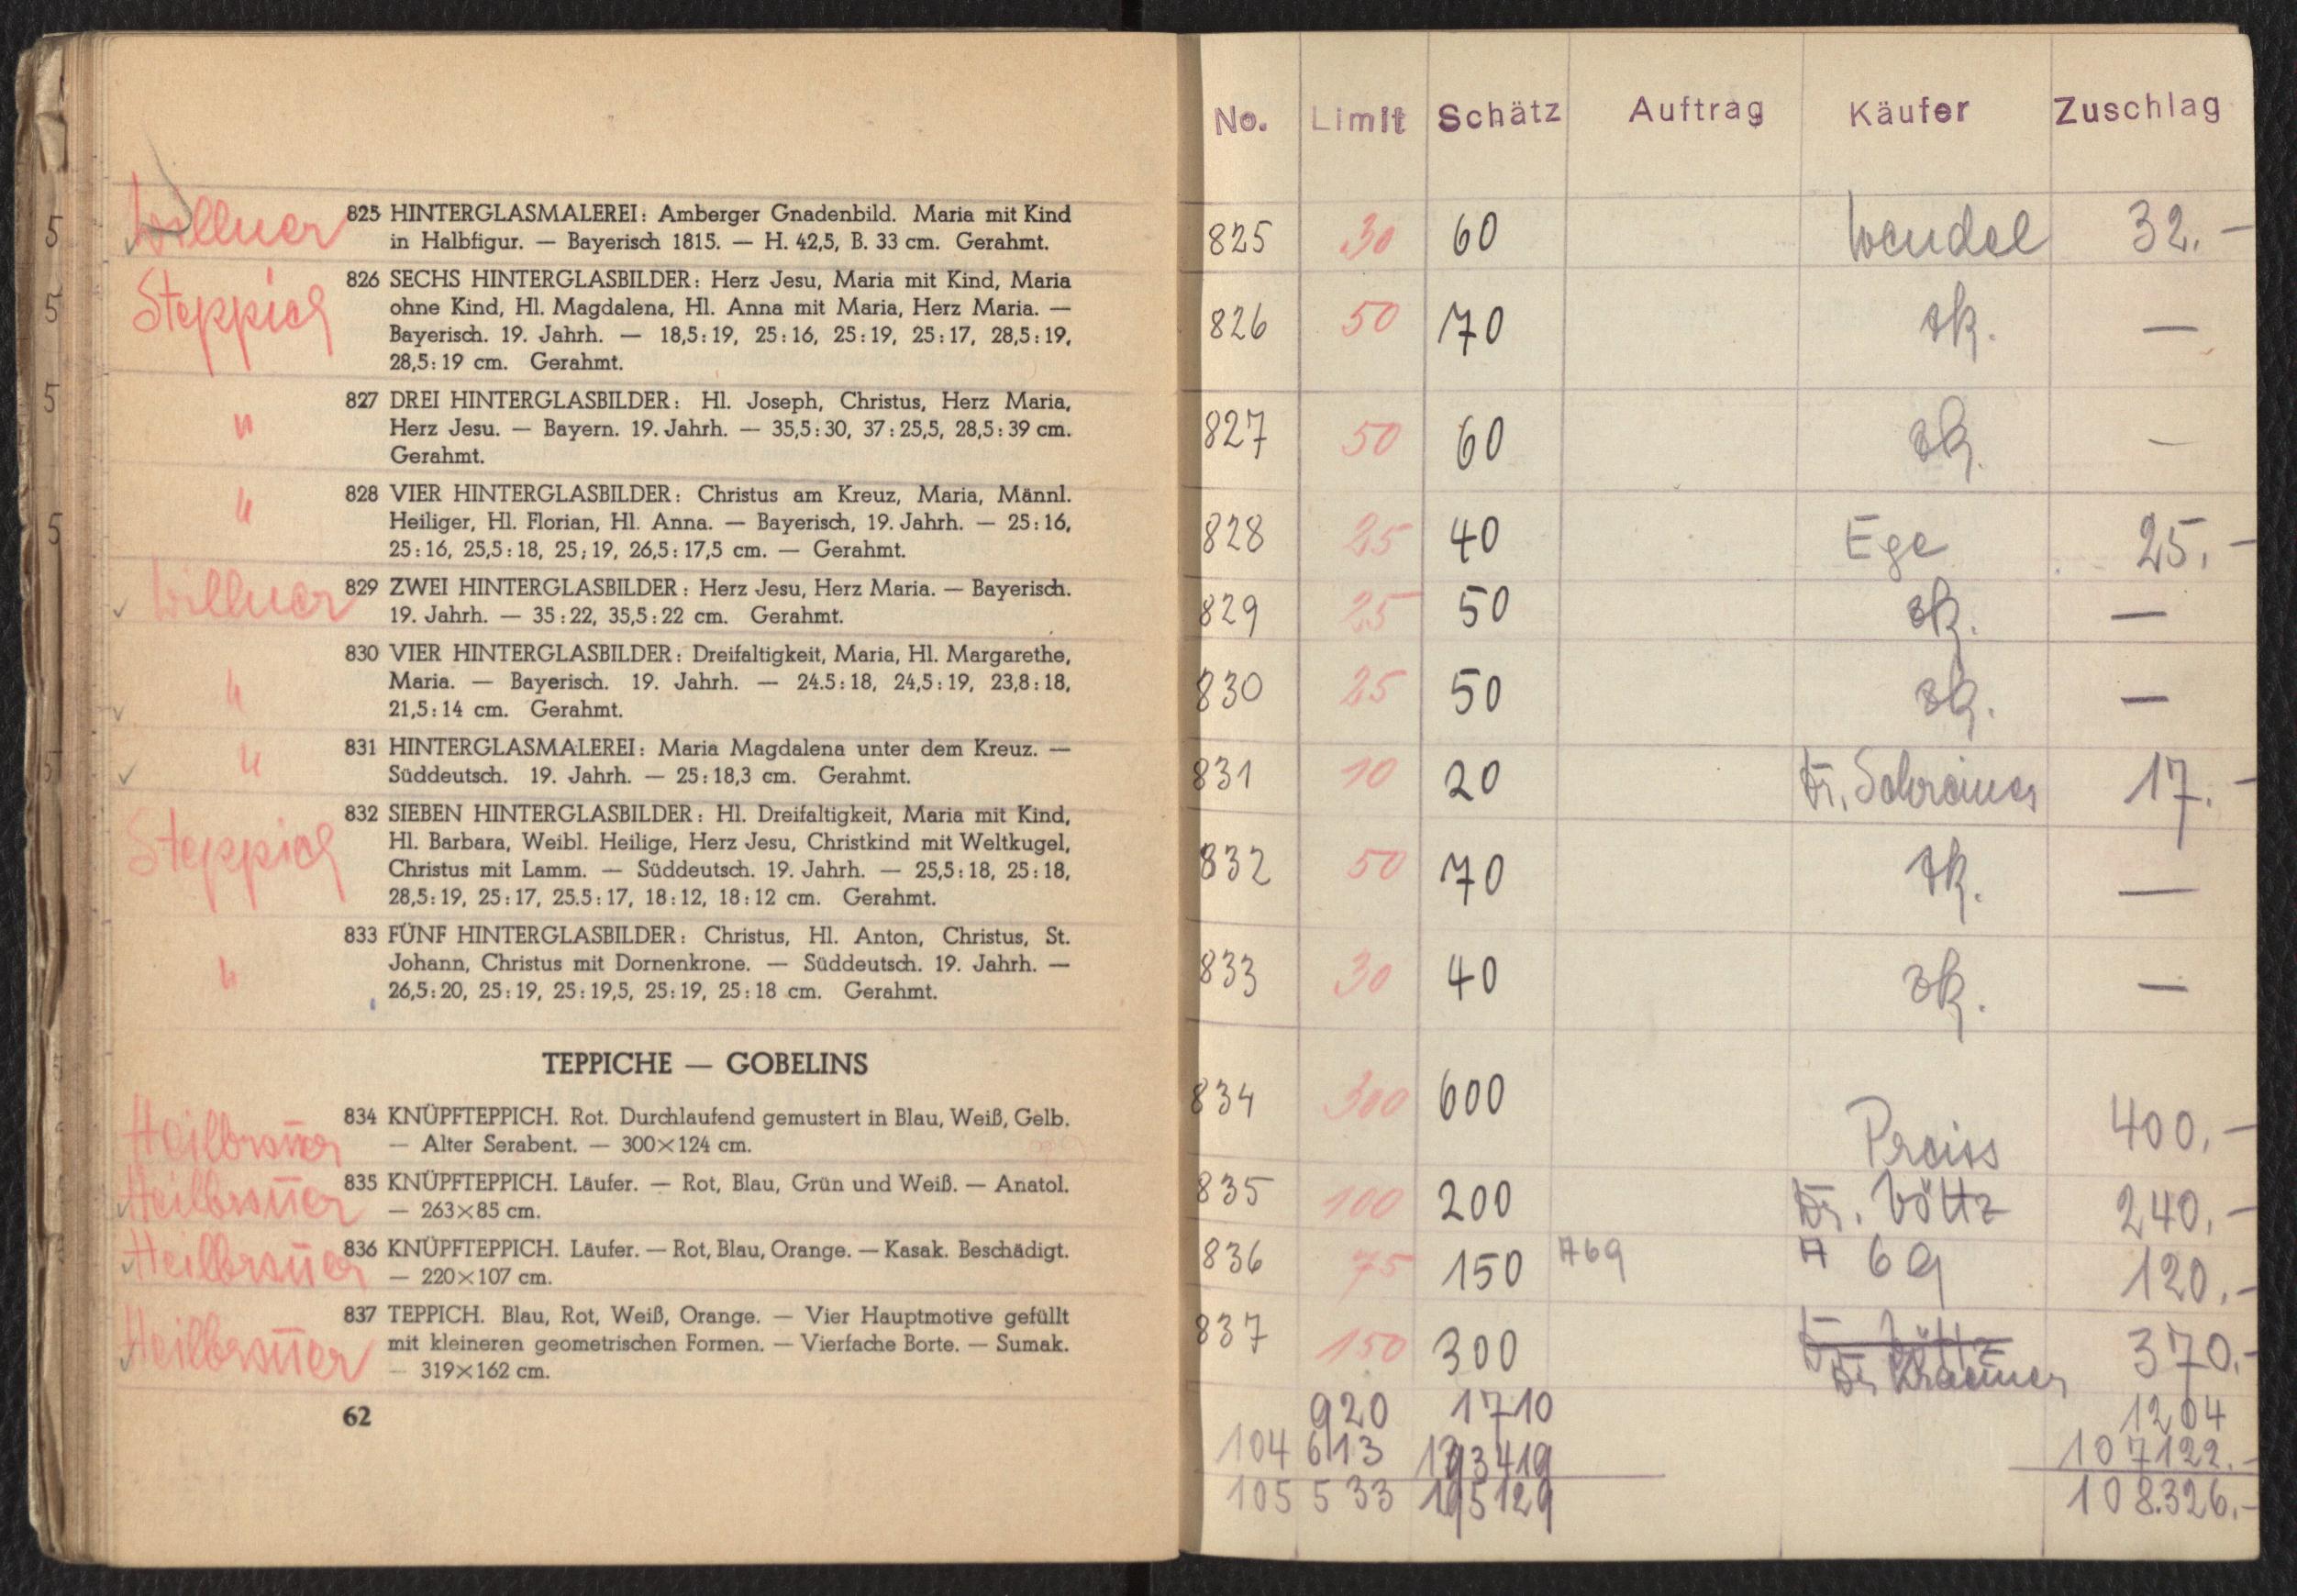 5
Willner
825 HINTERGLASMALEREI: Amberger Gnadenbild. Maria mit Kind
in Halbfigur. — Bayerisch 1815. — H. 42,5, B. 33 cm. Gerahmt.
5
Steppich
826 SECHS HINTERGLASBILDER: Herz Jesu, Maria mit Kind, Maria
ohne Kind, Hl. Magdalena, Hl. Anna mit Maria, Herz Maria. —
Bayerisch. 19. Jahrh. — 18,5:19, 25:16, 25:19, 25:17, 28,5:19,
28,5:19 cm. Gerahmt.
5
"
827 DREI HINTERGLASBILDER: Hl. Joseph, Christus, Herz Maria,
Herz Jesu. — Bayern. 19. Jahrh. — 35,5:30, 37:25,5, 28,5:39 cm.
Gerahmt.
5
"
828 VIER HINTERGLASBILDER: Christus am Kreuz, Maria, Männl.
Heiliger, Hl. Florian, Hl. Anna. — Bayerisch, 19. Jahrh. — 25:16,
25:16, 25,5:18, 25;19, 26,5:17,5 cm. — Gerahmt.
Willner
829 ZWEI HINTERGLASBILDER: Herz Jesu, Herz Maria. — Bayerisch.
19. Jahrh. — 35:22, 35,5:22 cm. Gerahmt.
"
830 VIER HINTERGLASBILDER: Dreifaltigkeit, Maria, Hl. Margarethe,
Maria. — Bayerisch. 19. Jahrh. — 24.5:18, 24,5:19, 23,8:18,
21,5:14 cm. Gerahmt.
5
"
831 HINTERGLASMALEREI: Maria Magdalena unter dem Kreuz. —
Süddeutsch. 19. Jahrh. — 25:18,3 cm. Gerahmt.
Steppich
832 SIEBEN HINTERGLASBILDER: Hl. Dreifaltigkeit, Maria mit Kind,
Hl. Barbara, Weibl. Heilige, Herz Jesu, Christkind mit Weltkugel,
Christus mit Lamm. — Süddeutsch. 19. Jahrh. — 25,5:18, 25:18,
28,5:19, 25:17, 25.5:17, 18:12, 18:12 cm. Gerahmt.
"
833 FÜNF HINTERGLASBILDER: Christus, Hl. Anton, Christus, St.
Johann, Christus mit Dornenkrone. — Süddeutsch. 19. Jahrh. —
26,5:20, 25:19, 25:19,5, 25:19, 25:18 cm. Gerahmt.
TEPPICHE — GOBELINS
Heilbronner
834 KNÜPFTEPPICH. Rot. Durchlaufend gemustert in Blau, Weiß, Gelb.
— Alter Serabent. — 300×124 cm.
Heilbronner
835 KNÜPFTEPPICH. Läufer. — Rot, Blau, Grün und Weiß. — Anatol.
— 263×85 cm.
Heilbronner
836 KNÜPFTEPPICH. Läufer. — Rot, Blau, Orange. — Kasak. Beschädigt.
— 220×107 cm.
Heilbronner
837 TEPPICH. Blau, Rot, Weiß, Orange. — Vier Hauptmotive gefüllt
mit kleineren geometrischen Formen. — Vierfache Borte. — Sumak.
— 319×162 cm.
62
No. Limit Schätz Auftrag Käufer Zuschlag
825 30 60 Wendel 32.—
826 50 70 zk. —
827 50 60 zk. —
828 25 40 Ege 25.—
829 25 50 zk. —
830 25 50 zk. —
831 10 20 Dr. 17.—
832 50 70 zk. —
833 30 40 zk. —
834 300 600 Preiss 400.—
835 100 200 Dr. Wöttz 240.—
836 75 150 A69 A 69 120.—
837 150 300 Dr. Wöttz 370.—
Dr Kraemer
920 1710 1204
104 613 193419 107122.—
105 533 195129 108.326.—